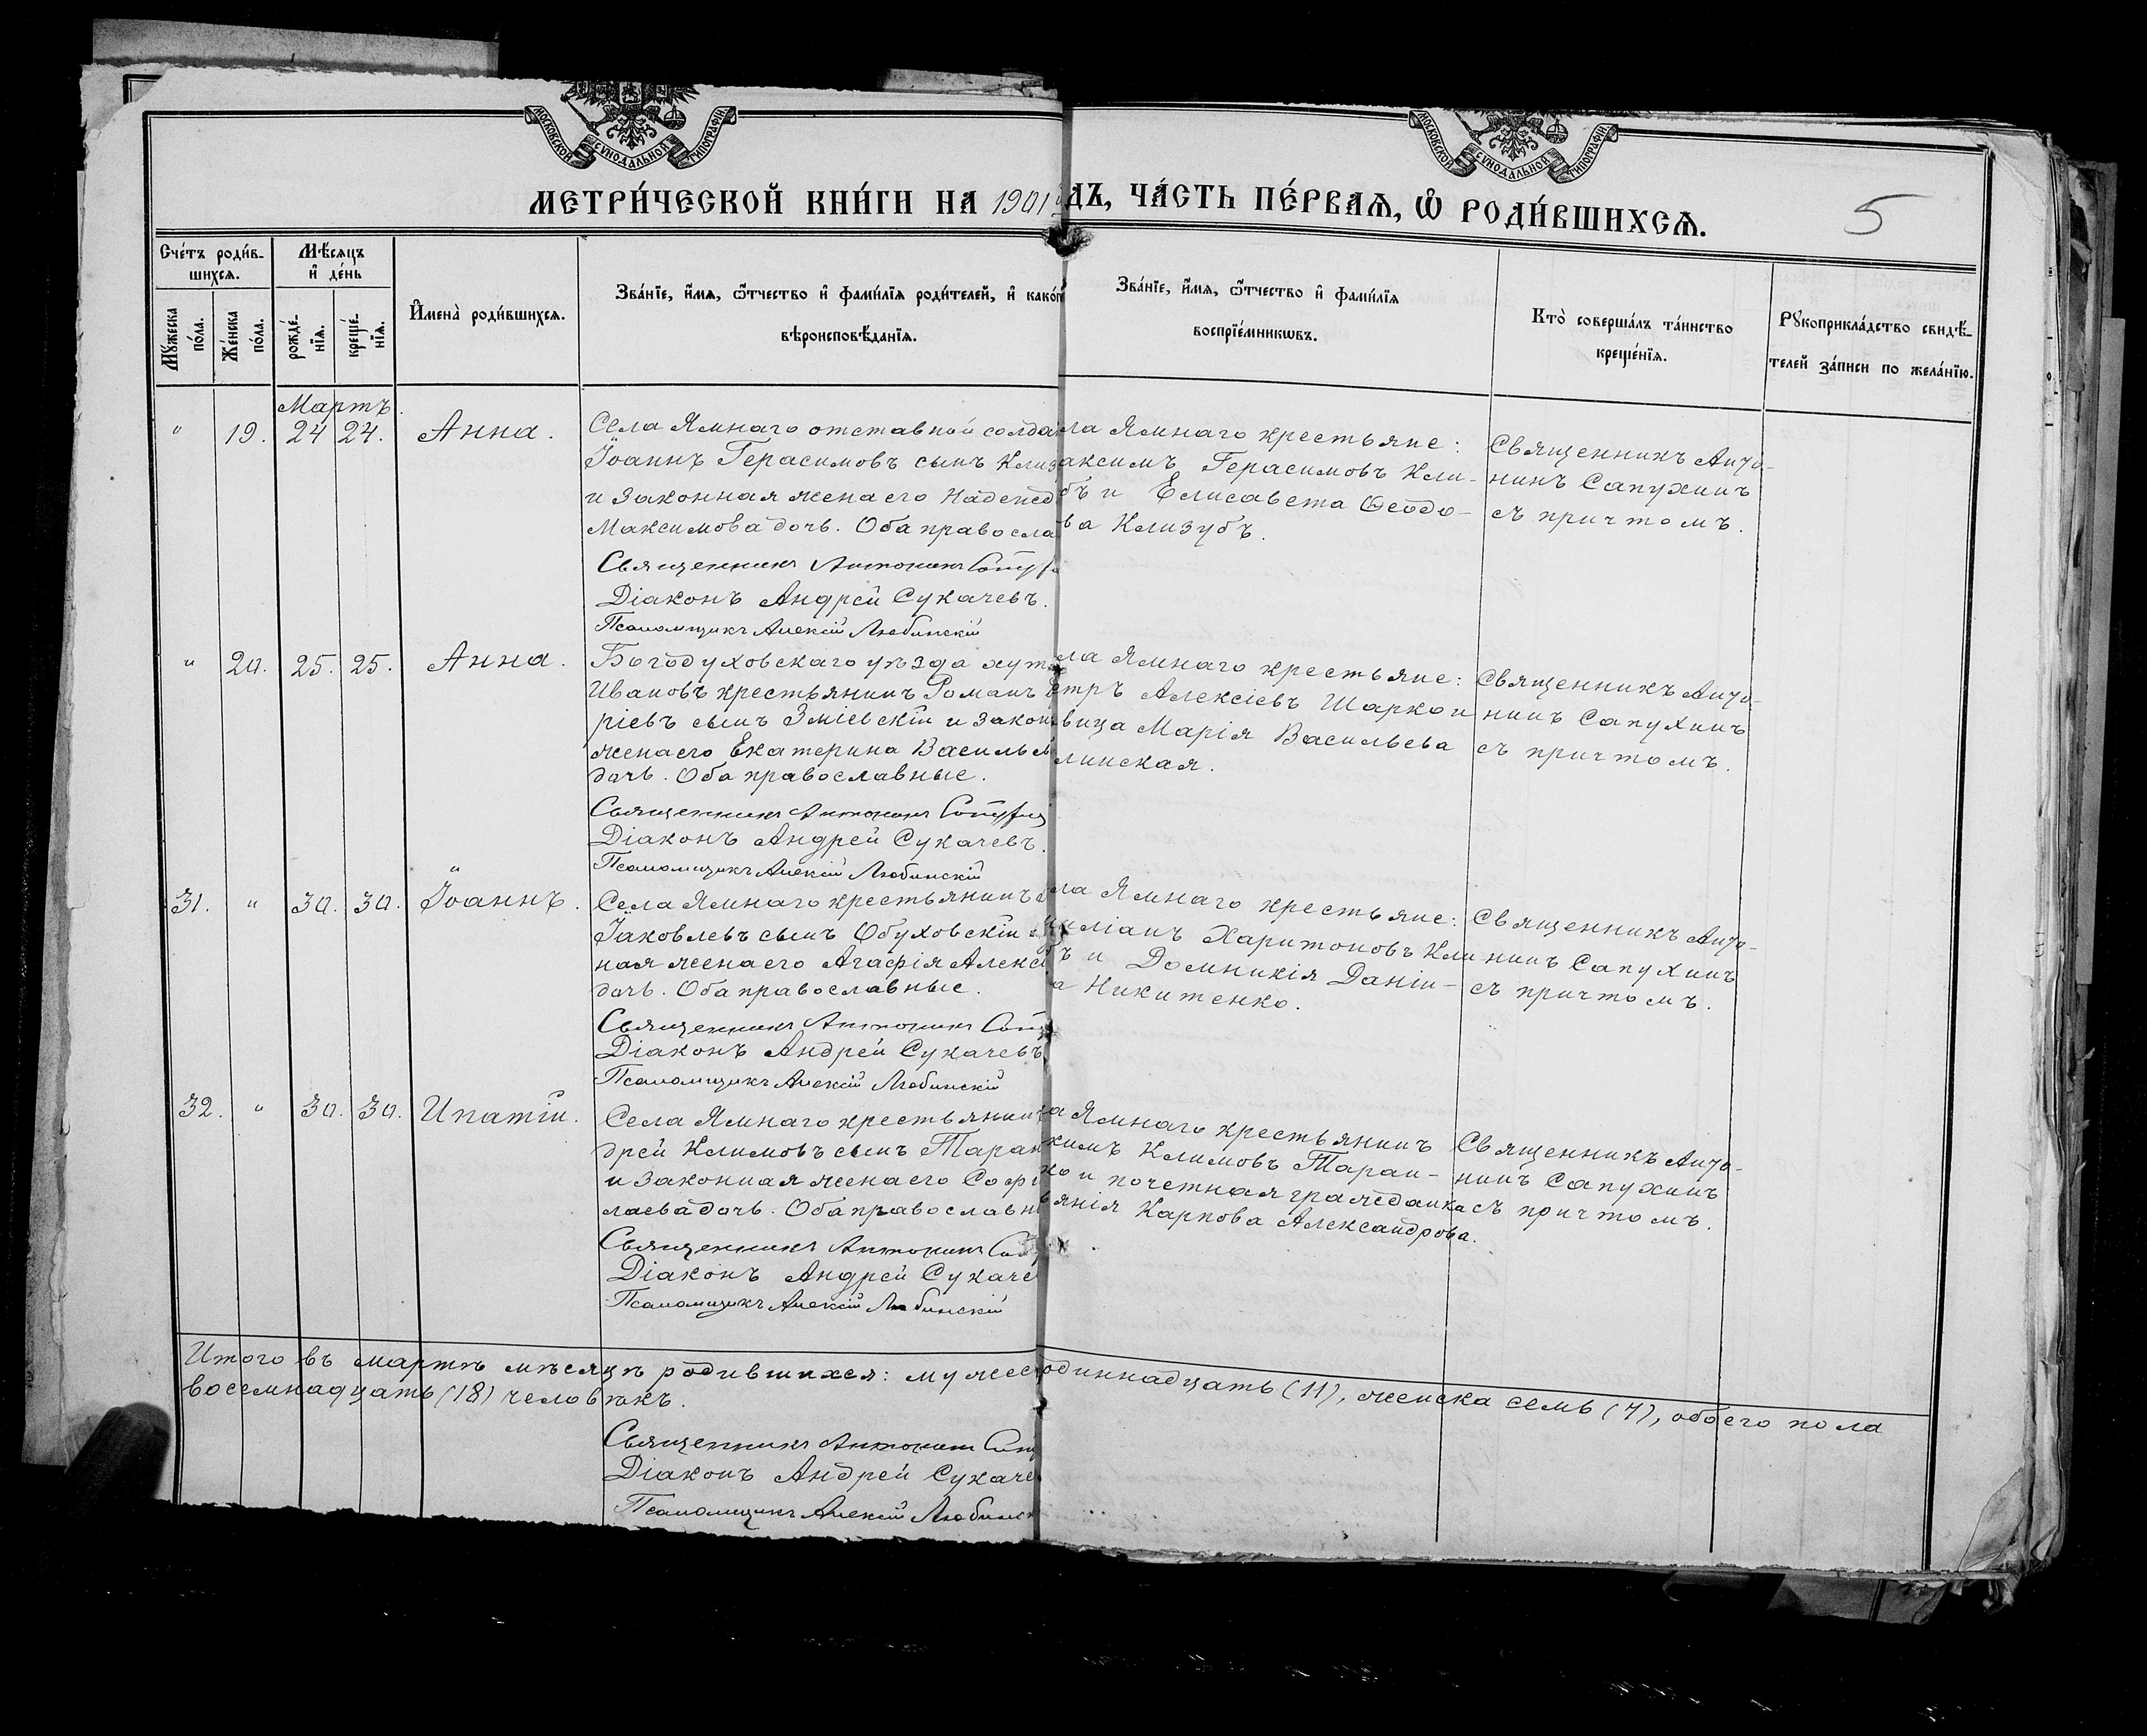 МОСКОВСКОЙ СѴНОДАЛЬНОЙ ТИПОГРАФІИ
МОСКОВСКОЙ СѴНОДАЛЬНОЙ ТИПОГРАФІИ
МЕТРИ́ЧЕСКОЙ КНИ́ГИ НА 1901
ДЪ, ЧА́СТЬ ПЕ́РВАѦ, Ѡ РОДИ́ВШИХСѦ.
5
Сче́тъ роди́в-
шихсѧ.
Мѣ́сѧцъ
и҆ де́нь
Мꙋ́жеска
по́ла.
Же́нска
по́ла.
рожде́-
нїѧ.
креще́-
нїѧ.
И҆мена̀ роди́вшихсѧ.
Зва́нїе, и҆́мѧ, ѿтчество и҆ фами́лїѧ роди́телей, и҆ како́гѡ
вѣроисповѣ́данїѧ.
Зва́нїе, и҆́мѧ, ѿтчество и҆ фами́лїѧ
воспрїе́мникѡвъ.
Кто̀ соверша́лъ та́инство
креще́нїѧ.
Рꙋкоприкла́дство свидѣ́-
телей за́писи по жела́нїю.
Мартъ.
" 19. 24 24. Анна.
Села Ямнаго отставной солда
Іоаннъ Герасимовъ сынъ Клиз
и законная жена его Надежд
Максимова дочь. Оба правосла
Священникъ Антонинъ Сапух
Діаконъ Андрей Сукачевъ.
Псаломщикъ Алексій Любинскій
ла Ямнаго крестьяне:
аксимъ Герасимовъ Кли-
бъ и Елисавета Ѳеодо-
ва Клизубъ.
Священникъ Анто-
нинъ Сапухинъ
съ причтомъ.
" 20. 25. 25. Анна.
Богодуховскаго уѣзда хут
Ивановъ крестьянинъ Романъ
ріевъ сынъ Зміевскій и закон
жена его Екатерина Василье
дочь. Оба православные.
Священникъ Антонинъ Сапухи
Діаконъ Андрей Сукачевъ.
Псаломщикъ Алексій Любинскій
ла Ямнаго крестьяне:
етръ Алексіевъ Шарко и
вица Марія Васильева
линская.
Священникъ Анто-
нинъ Сапухинъ
съ причтомъ.
31. " 30. 30. Іоаннъ.
Села Ямнаго крестьянинъ
Іаковлевъ сынъ Обуховскій
ная жена его Агафія Алексі
дочь. Оба православные.
Священникъ Антонинъ Сап
Діаконъ Андрей Сукачевъ
Псаломщикъ Алексій Любинскій
ла Ямнаго крестьяне:
иліанъ Харитоновъ Кли
бъ и Домникія Даніи-
а Никитенко.
Священникъ Анто-
нинъ Сапухинъ
съ причтомъ.
32. " 30. 30. Ипатій.
Села Ямнаго крестьянинъ
дрей Климовъ сынъ Таран
и законная жена его Софі
лаева дочь. Оба православн
Священникъ Антонинъ Сап
Діаконъ Андрей Сукаче
Псаломщикъ Алексій Любинскій
а Ямнаго крестьянинъ
кимъ Климовъ Таран-
ко и почетная гражданка
янія Карпова Александрова.
Священникъ Анто-
нинъ Сапухинъ
съ причтомъ.
Итого въ мартѣ мѣсяцѣ родившихся: мужес одиннадцать (11), женска семь (7), обоего пола
восемнадцать (18) человѣкъ.
Священникъ Антонинъ Сап
Діаконъ Андрей Сукаче
Псаломщикъ Алексій Любинск